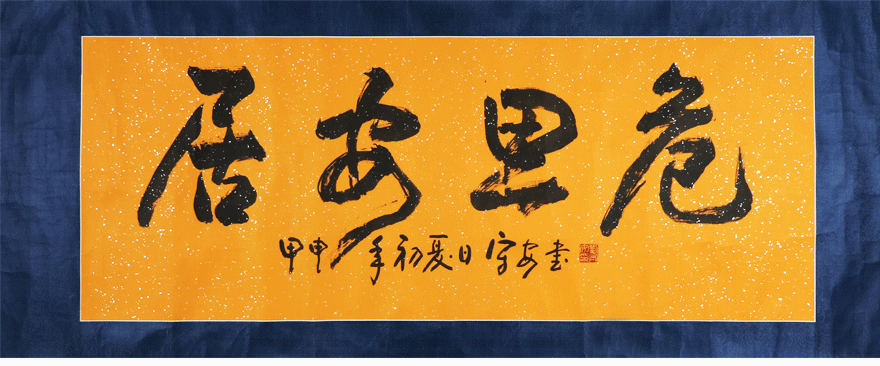 居安思危
甲申年初夏日守安書